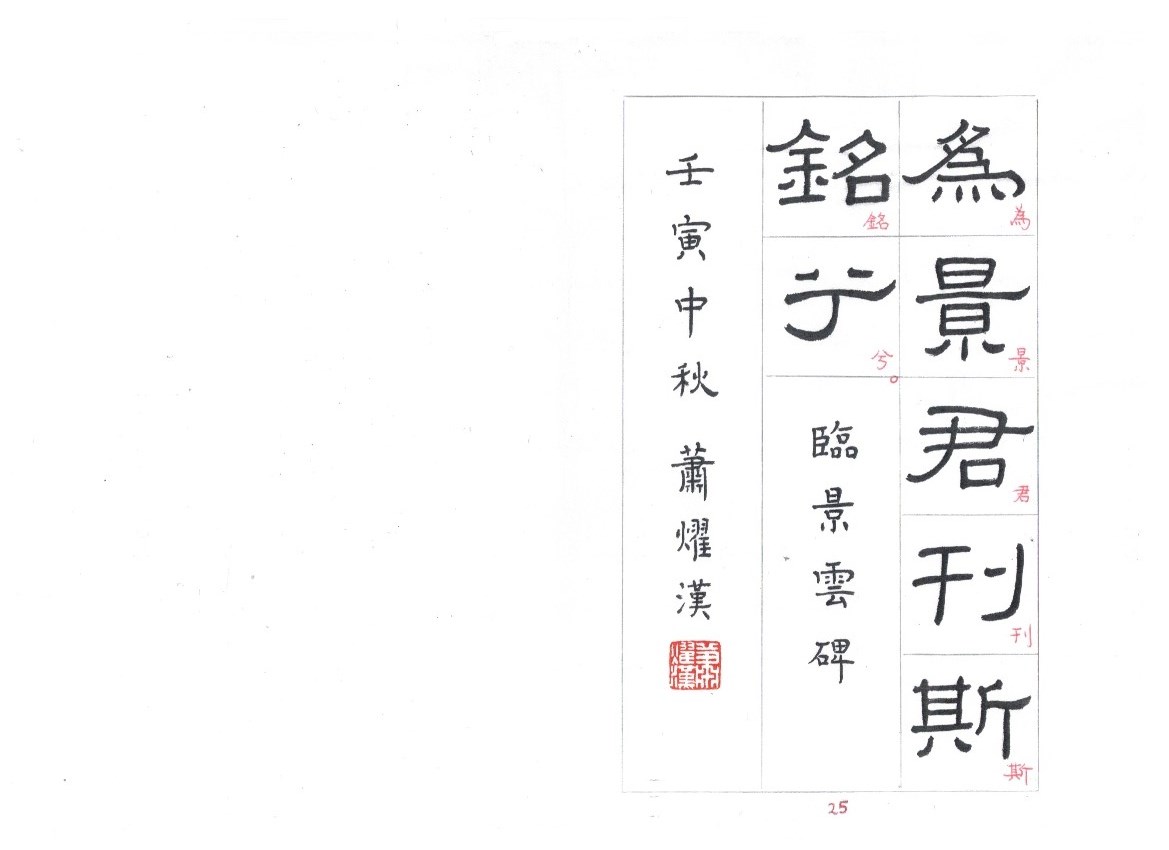 爲景君刊斯
為景君刊斯
銘兮
銘兮。
臨景雲碑
壬寅中秋 蕭燿漢
蕭燿漢
25